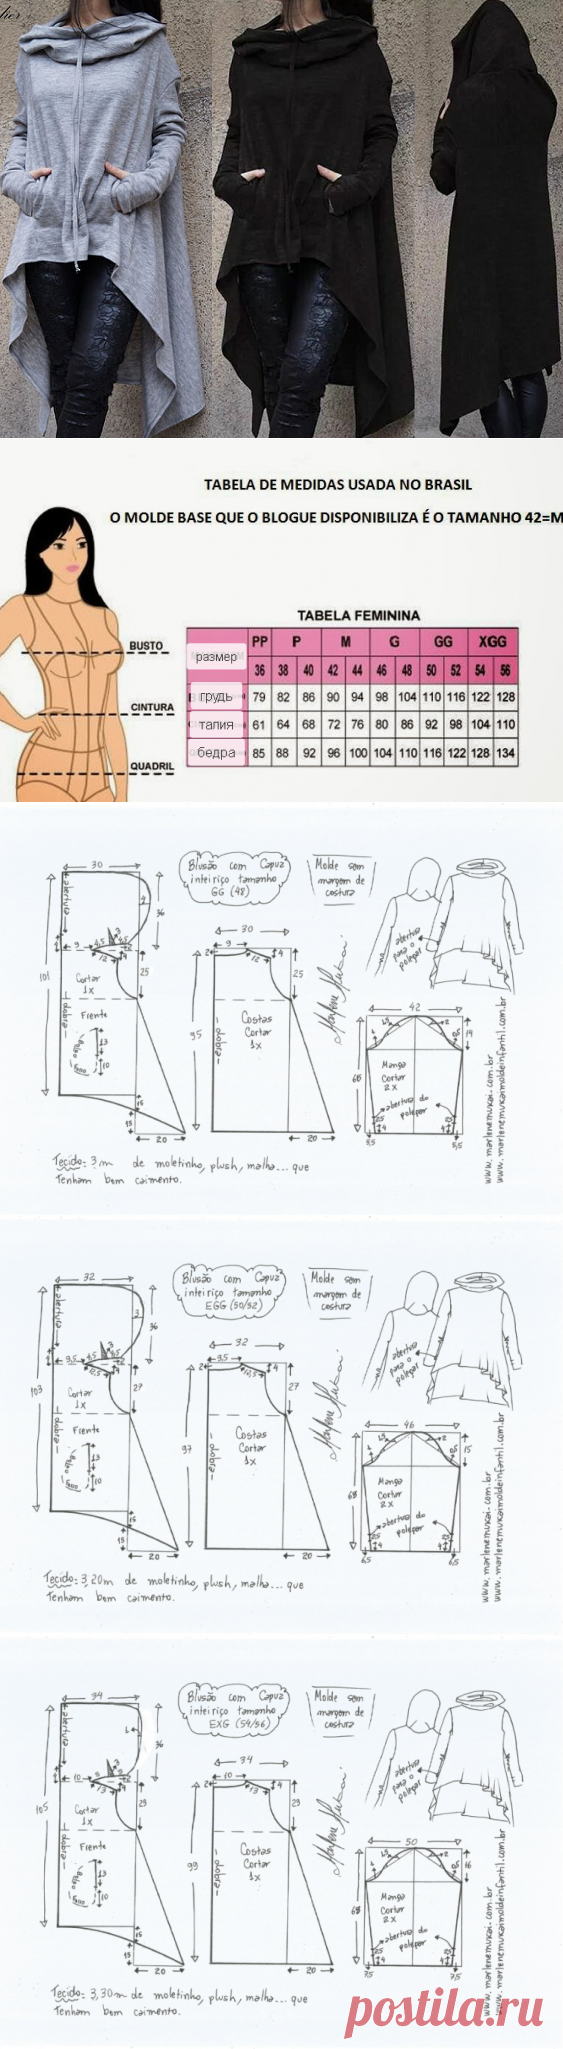 TABELA DE MEDIDAS USADA NO BRASIL
O MOLDE BASE QUE O BLOGUE DISPONIBILIZA É O TAMANHO 42=M
TABELA FEMININA
BUSTO
CINTURA
QUADRIL
размер PP P M G GG XGG
36 38 40 42 44 46 48 50 52 54 56
грудь 79 82 86 90 94 98 104 110 116 122 128
талия 61 64 68 72 76 80 86 92 98 104 110
бедра 85 88 92 96 100 104 110 116 122 128 134
Blusão com Capuz
inteiriço tamanho
GG (48)
Molde sem
margem de
costura
30
abertura
36
101
9
4,5
4,5
12
25
Cortar
1x
Frente
dobra
Bolso
13
10
15
15
20
30
9
2
12
4
25
95
Costas
Cortar
1x
dobra
20
abertura
para o
polegar
42
14
Manga
Cortar
2x
abertura do
polegar
5,5
5,5
www.marlenemukai.com.br
www.marlenemukaimoldeinfantil.com.br
Tecido: 3m de moletinho, plush, malha... que
Tenham bom caimento.
Blusão com Capuz
inteiriço tamanho
EGG (50/52)
Molde sem
margem de
costura
32
abertura
36
103
9,5
12,5
27
Cortar
1x
Frente
dobra
Bolso
13
10
15
15
20
32
9,5
2
12,5
4
27
97
Costas
Cortar
1x
dobra
20
abertura
para o
polegar
46
15
68
Manga
Cortar
2x
abertura do
polegar
6,5
6,5
www.marlenemukai.com.br
www.marlenemukaimoldeinfantil.com.br
Tecido: 3,20m de moletinho, plush, malha... que
Tenham bom caimento.
Blusão com Capuz
inteiriço tamanho
EXG (54/56)
Molde sem
margem de
costura
34
abertura
36
105
10
13
29
Cortar
1x
Frente
dobra
Bolso
13
10
15
15
20
34
10
2
13
4
29
99
Costas
Cortar
1x
dobra
20
abertura
para o
polegar
50
16
68
Manga
Cortar
2x
abertura do
polegar
7,5
7,5
www.marlenemukai.com.br
www.marlenemukaimoldeinfantil.com.br
Tecido: 3,30m de moletinho, plush, malha... que
Tenham bom caimento.
postila.ru